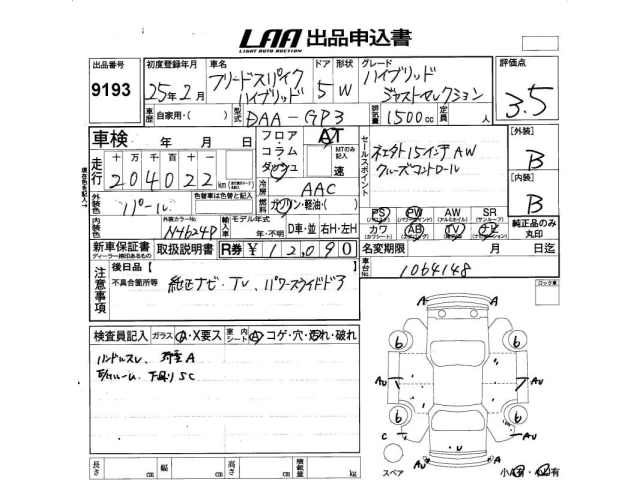 LAA 出品申込書
LIGHT AUTO AUCTION
出品番号
9193
初度登録年月
25年2月
車名
フリードスパイク
ハイブリッド
ドア 形状
5 W
グレード
ハイブリッド
ジャストセレクション
評価点
3.5
車歴 自家用・( )
型式 DAA-GP3
排気量 1500cc
定員 人
車検 年 月 日
フロア・コラム・ダッシュ
AT
MTのみ記入
速
セールスポイント
純正15インチAW
クルーズコントロール
[外装]
B
[内装]
B
走行
十 万 千 百 十
204022 km
冷房 AAC
燃料 ガソリン・軽油・( )
外装色 パール
色替車は色替と記入
内装色
外装カラーNo.
NH624P
輸入車
モデル年式
年・不明
D車・並 右H・左H
PS PW AW SR
カワ AB TV ナビ
純正品のみ丸印
新車保証書
ディーラー捺印あるもの
取扱説明書
R券 ¥12,090
名変期限 月 日迄
車台No. 1064148
注意事項
後日品【 】
不具合箇所等
純正ナビ・TV、パワースライドドア
ロック車
検査員記入 ガラス A・X要ス
室内シート A コゲ・穴・汚れ・破れ
ハンドルスレ、
下廻りSC
A A
6 6
AU AU
6 6
C AU
U
AU A
スペア
小A有・小U有
長さ cm 幅 cm 高さ cm 積載量 kg